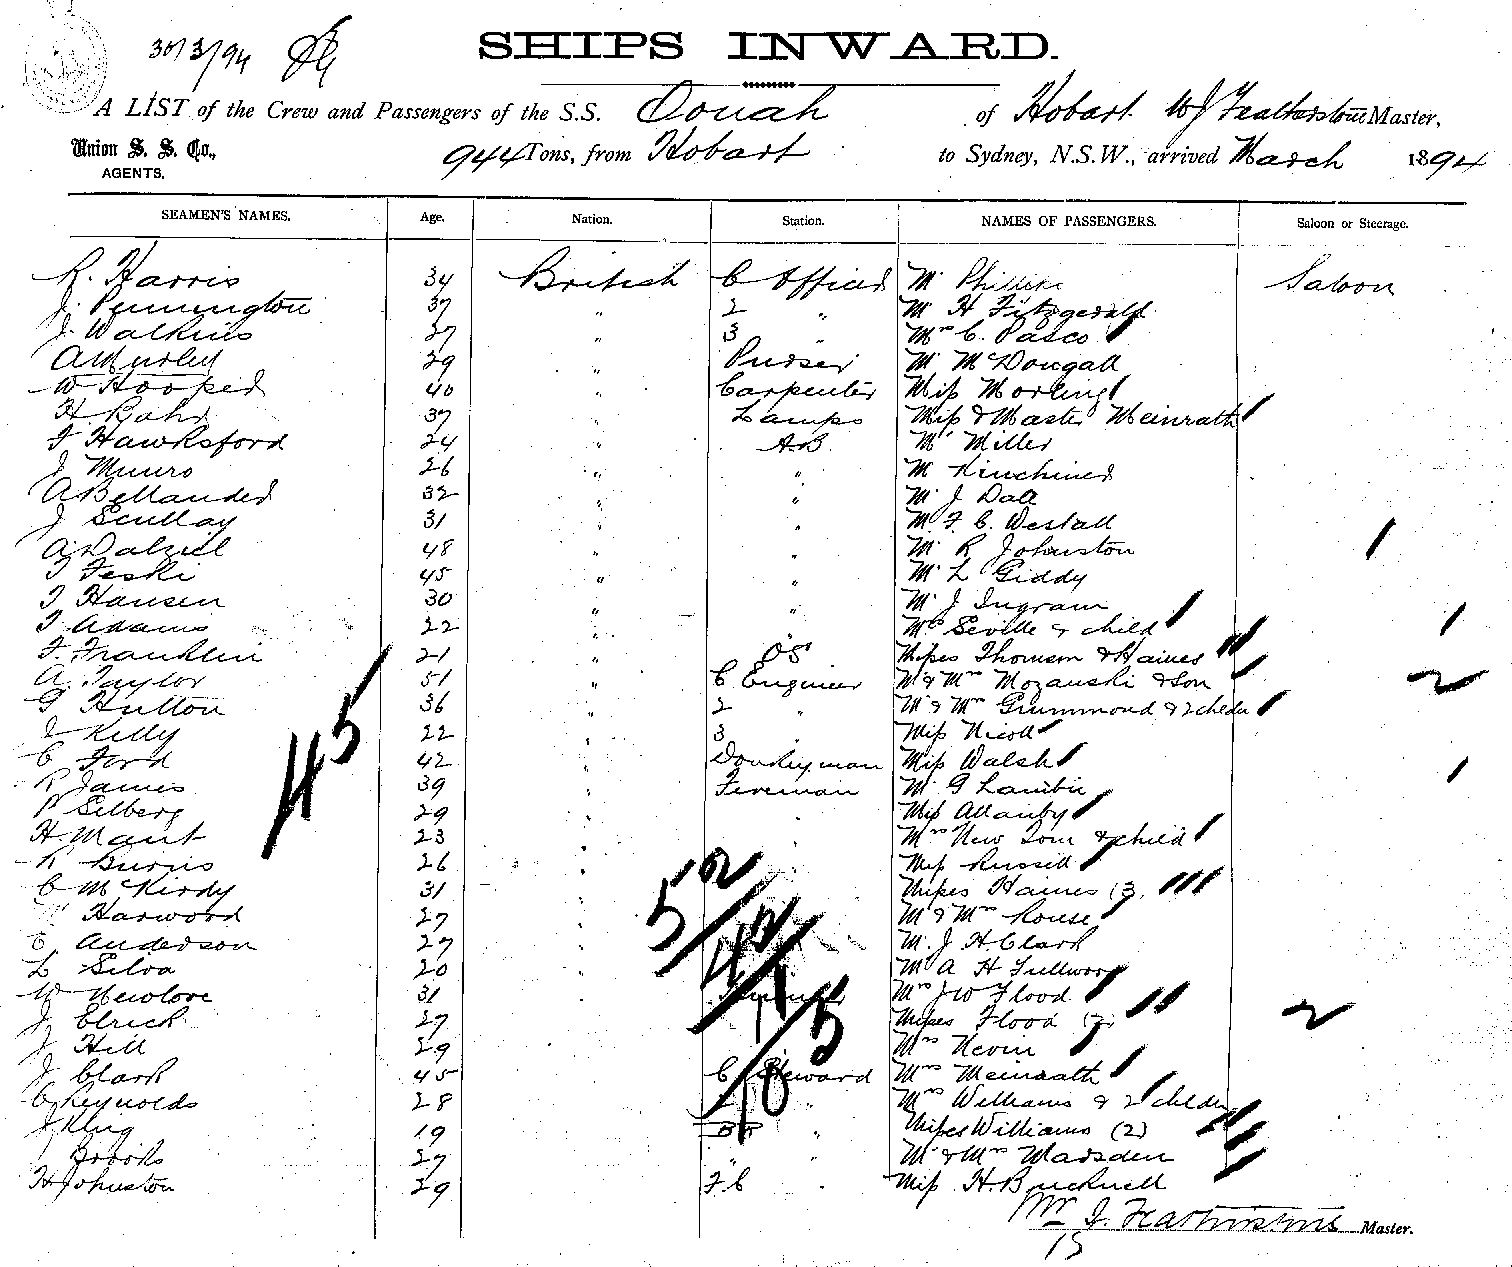 30/3/94
SHIPS INWARD.
A LIST of the Crew and Passengers of the S.S. Oonah of Hobart. W J Featherstone Master,
Union S. S. Co., 944 Tons, from Hobart to Sydney, N.S.W., arrived March 1894
AGENTS.
SEAMEN'S NAMES. Age. Nation. Station. NAMES OF PASSENGERS. Saloon or Steerage.
R. Harris 34 British C Officer Mr Saloon
J. Pennington 37 " 2 " Mr H Fitzgerald
J. Watkins 27 " 3 " Mrs C. Pasco
A Murley 29 " Purser Mr McDougall
W Hooper 40 " Carpenter Miss Morling
H Bahr 37 " Lamps Miss & Master Meinrath
F Hawksford 24 " A.B. Mr Miller
J Munro 26 " " Mr
A Bellander 32 " " Mr J Dall
J Scullay 31 " " Mr F. C. Westall
A. Dalziel 48 " " Mr R Johnston
T Feski 45 " " Mr L Giddy
T Hansen 30 " " Mr J Ingram
T Adams 22 " " Mrs Seville & child
F. Franklin 21 " OS Misses Thomson & Haines
A. Taylor 51 " C Engineer Mr & Mrs Mozanski & Son
G Hutton 36 " 2 " Mr & Mrs Grummond & 2 childn
J Kelly 22 " 3 " Miss Nicoll
C Ford 42 " Donkeyman Miss Walsh
R James 39 " Fireman Mr G Lambie
P Selberg 29 " Miss Allanby
H. Mant 23 " " Mrs New Som & child
R Burns 26 " Miss Russell
C McKirdy 31 " Misses Haines (3)
Harwood 27 " Mr & Mrs Rouse
C. Anderson 27 " Mr. J. H. Clark
L Silva 20 " Mr A H Fullwood
W Newlove 31 Mrs J W Flood
J Elrick 27 Misses Flood (2)
J Hill 29 Mrs Nevin
J Clark 45 C Steward Mrs Meinrath
C Reynolds 28 2 " Mrs Williams & 2 childn
J King 19 " Misses Williams (2)
Brooks 27 " " Mr & Mrs Marsden
H Johnston 29 F.C " Miss H. Bucknell
45
52
47
5
W J Featherstone Master.
15